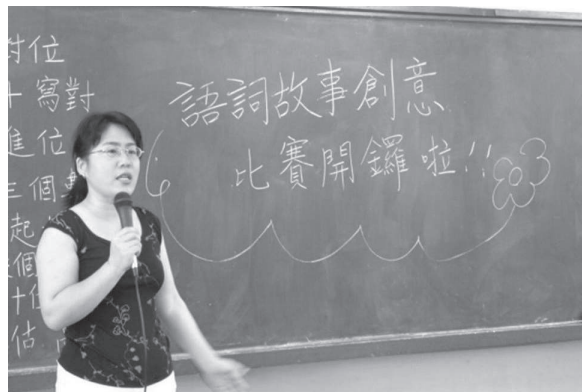 對位
十寫對
進位
三個
起
個
十位
估
語詞故事創意
比賽開鑼啦!!